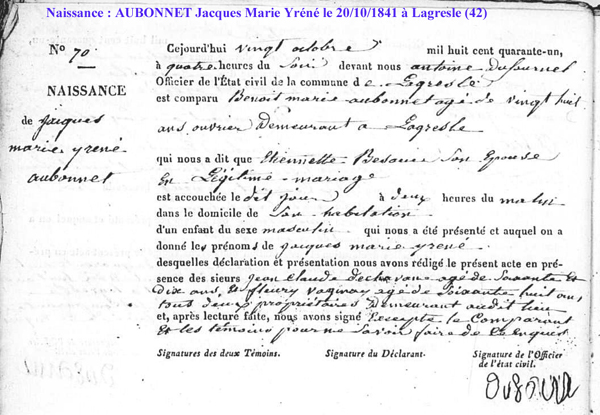 Naissance : AUBONNET Jacques Marie Yréné le 20/10/1841 à Lagresle (42)
N° 70
NAISSANCE
de jacques
marie yrené
aubonnet
Cejourd'hui vingt octobre mil huit cent quarante-un,
à quatre heures du Soir devant nous antoine Dufournel
Officier de l'État civil de la commune de Lagresle
est comparu Benoit marie aubonnet agé de vingt huit
ans ouvrier Demeurant a Lagresle
qui nous a dit que Etiennette Son Epouse
En Légitime mariage
est accouchée le dit jour à deux heures du matin
dans le domicile de Son habitation
d'un enfant du sexe masculin qui nous a été présenté et auquel on a
donné les prénoms de jacques marie yrené
desquelles déclaration et présentation nous avons rédigé le présent acte en pré-
sence des sieurs jean Claude agé de Soixante Et
Dix ans, Et fleury vaginay agé de Soixante huit ans,
tous deux propriétaires Demeurant audit lieu
et, après lecture faite, nous avons signé Excepté le Comparant
Et les témoins pour ne Savoir faire de
Signatures des deux Témoins.
Signature du Déclarant.
Signature de l'Officier
de l'état civil.